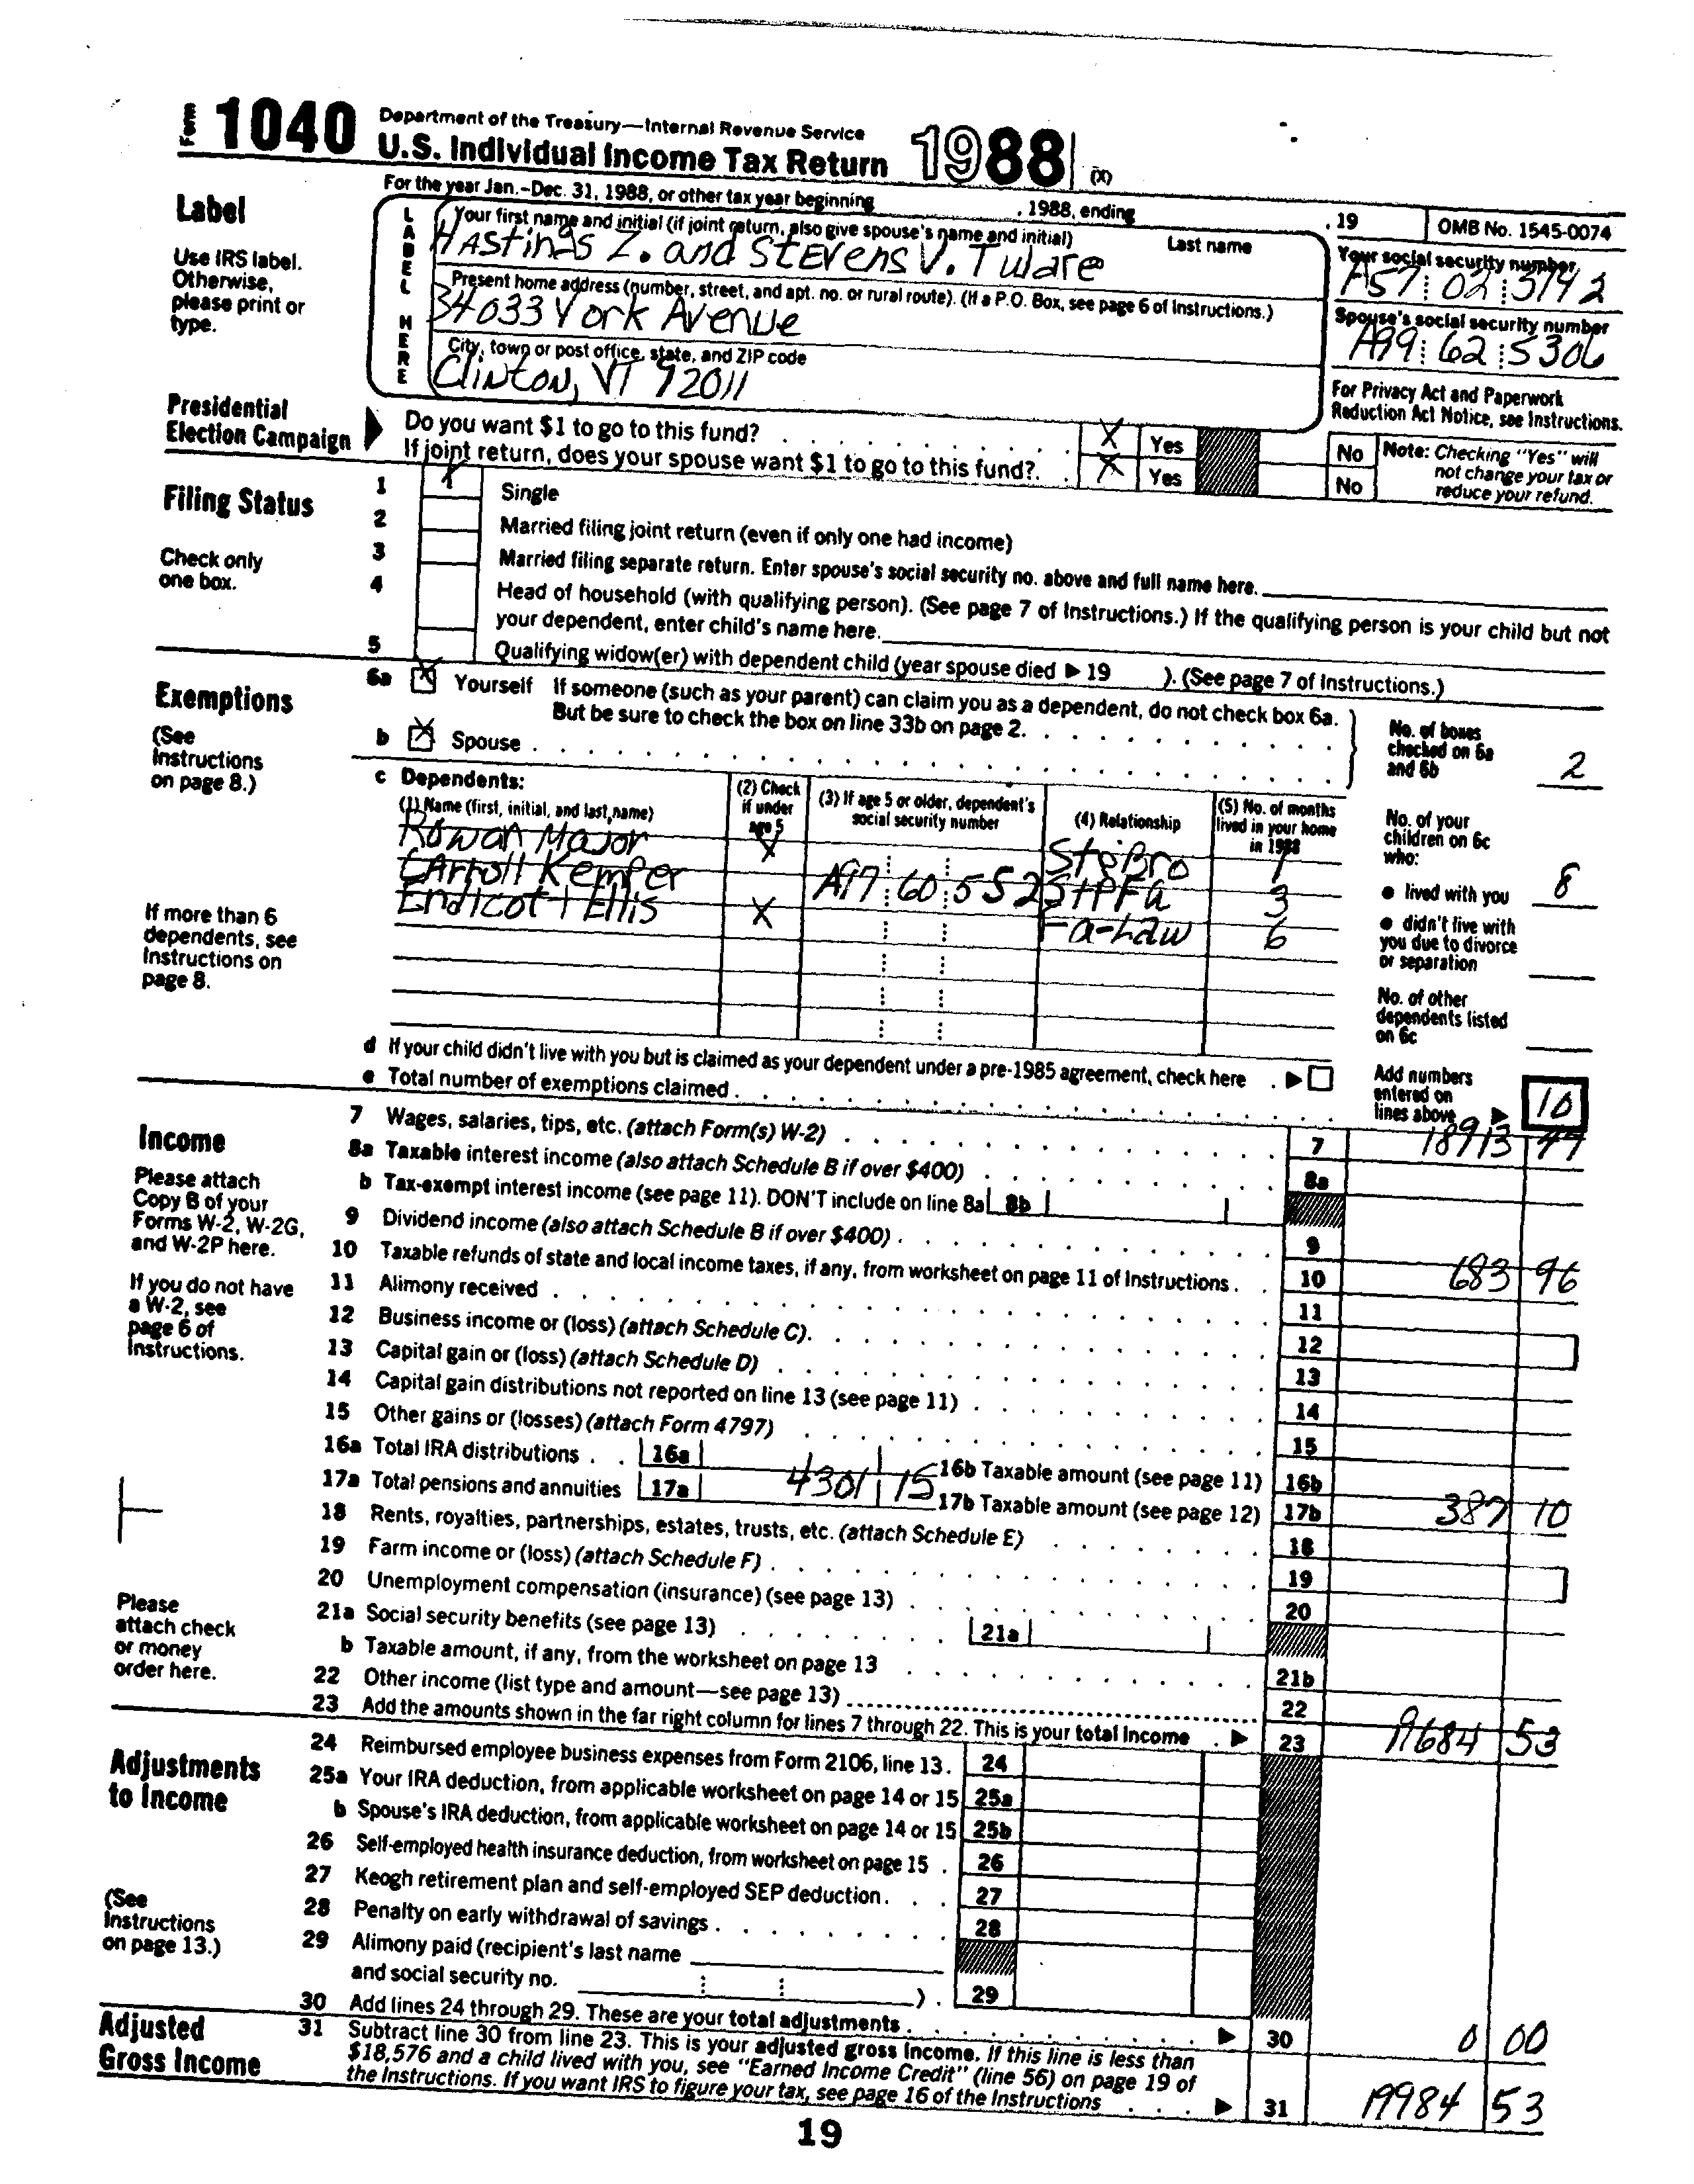 Form 1040 Department of the Treasury—Internal Revenue Service
U.S. Individual Income Tax Return 1988 (X)
For the year Jan.–Dec. 31, 1988, or other tax year beginning , 1988, ending , 19 OMB No. 1545-0074
Label
Use IRS label. Otherwise, please print or type.
LABEL HERE
Your first name and initial (if joint return, also give spouse's name and initial) Last name
Hastings Z. and Stevens V. Tulare
Your social security number
A57 02 3192
Present home address (number, street, and apt. no. or rural route). (If a P.O. Box, see page 6 of Instructions.)
34033 York Avenue
Spouse's social security number
A99 62 5306
City, town or post office, state, and ZIP code
Clinton, VT 92011
For Privacy Act and Paperwork Reduction Act Notice, see Instructions.
Presidential Election Campaign
Do you want $1 to go to this fund? X Yes No
If joint return, does your spouse want $1 to go to this fund? X Yes No
Note: Checking "Yes" will not change your tax or reduce your refund.
Filing Status
Check only one box.
1 X Single
2 Married filing joint return (even if only one had income)
3 Married filing separate return. Enter spouse's social security no. above and full name here.
4 Head of household (with qualifying person). (See page 7 of Instructions.) If the qualifying person is your child but not
your dependent, enter child's name here.
5 Qualifying widow(er) with dependent child (year spouse died ▶ 19 ). (See page 7 of Instructions.)
Exemptions
(See Instructions on page 8.)
6a X Yourself If someone (such as your parent) can claim you as a dependent, do not check box 6a.
But be sure to check the box on line 33b on page 2.
b X Spouse
No. of boxes checked on 6a and 6b 2
c Dependents:
(1) Name (first, initial, and last name) (2) Check if under age 5 (3) If age 5 or older, dependent's social security number (4) Relationship (5) No. of months lived in your home in 1988
Rowan Major X StpBro 1
Carroll Kemper A97 60 552 StPFa 3
Endicott Ellis X Fa-Law 6
If more than 6 dependents, see Instructions on page 8.
No. of your children on 6c who:
● lived with you 8
● didn't live with you due to divorce or separation
No. of other dependents listed on 6c
d If your child didn't live with you but is claimed as your dependent under a pre-1985 agreement, check here ▶
e Total number of exemptions claimed
Add numbers entered on lines above ▶ 10
Income
Please attach Copy B of your Forms W-2, W-2G, and W-2P here.
If you do not have a W-2, see page 6 of Instructions.
Please attach check or money order here.
7 Wages, salaries, tips, etc. (attach Form(s) W-2) 7 18913 47
8a Taxable interest income (also attach Schedule B if over $400) 8a
b Tax-exempt interest income (see page 11). DON'T include on line 8a 8b
9 Dividend income (also attach Schedule B if over $400) 9
10 Taxable refunds of state and local income taxes, if any, from worksheet on page 11 of Instructions 10 683 96
11 Alimony received 11
12 Business income or (loss) (attach Schedule C) 12
13 Capital gain or (loss) (attach Schedule D) 13
14 Capital gain distributions not reported on line 13 (see page 11) 14
15 Other gains or (losses) (attach Form 4797) 15
16a Total IRA distributions 16a 16b Taxable amount (see page 11) 16b
17a Total pensions and annuities 17a 4301 15 17b Taxable amount (see page 12) 17b 387 10
18 Rents, royalties, partnerships, estates, trusts, etc. (attach Schedule E) 18
19 Farm income or (loss) (attach Schedule F) 19
20 Unemployment compensation (insurance) (see page 13) 20
21a Social security benefits (see page 13) 21a
b Taxable amount, if any, from the worksheet on page 13 21b
22 Other income (list type and amount—see page 13) 22
23 Add the amounts shown in the far right column for lines 7 through 22. This is your total income ▶ 23 19684 53
Adjustments to Income
(See Instructions on page 13.)
24 Reimbursed employee business expenses from Form 2106, line 13. 24
25a Your IRA deduction, from applicable worksheet on page 14 or 15 25a
b Spouse's IRA deduction, from applicable worksheet on page 14 or 15 25b
26 Self-employed health insurance deduction, from worksheet on page 15 26
27 Keogh retirement plan and self-employed SEP deduction 27
28 Penalty on early withdrawal of savings 28
29 Alimony paid (recipient's last name
and social security no. ) 29
30 Add lines 24 through 29. These are your total adjustments ▶ 30 0 00
Adjusted Gross Income
31 Subtract line 30 from line 23. This is your adjusted gross income. If this line is less than
$18,576 and a child lived with you, see "Earned Income Credit" (line 56) on page 19 of
the Instructions. If you want IRS to figure your tax, see page 16 of the Instructions ▶ 31 19984 53
19